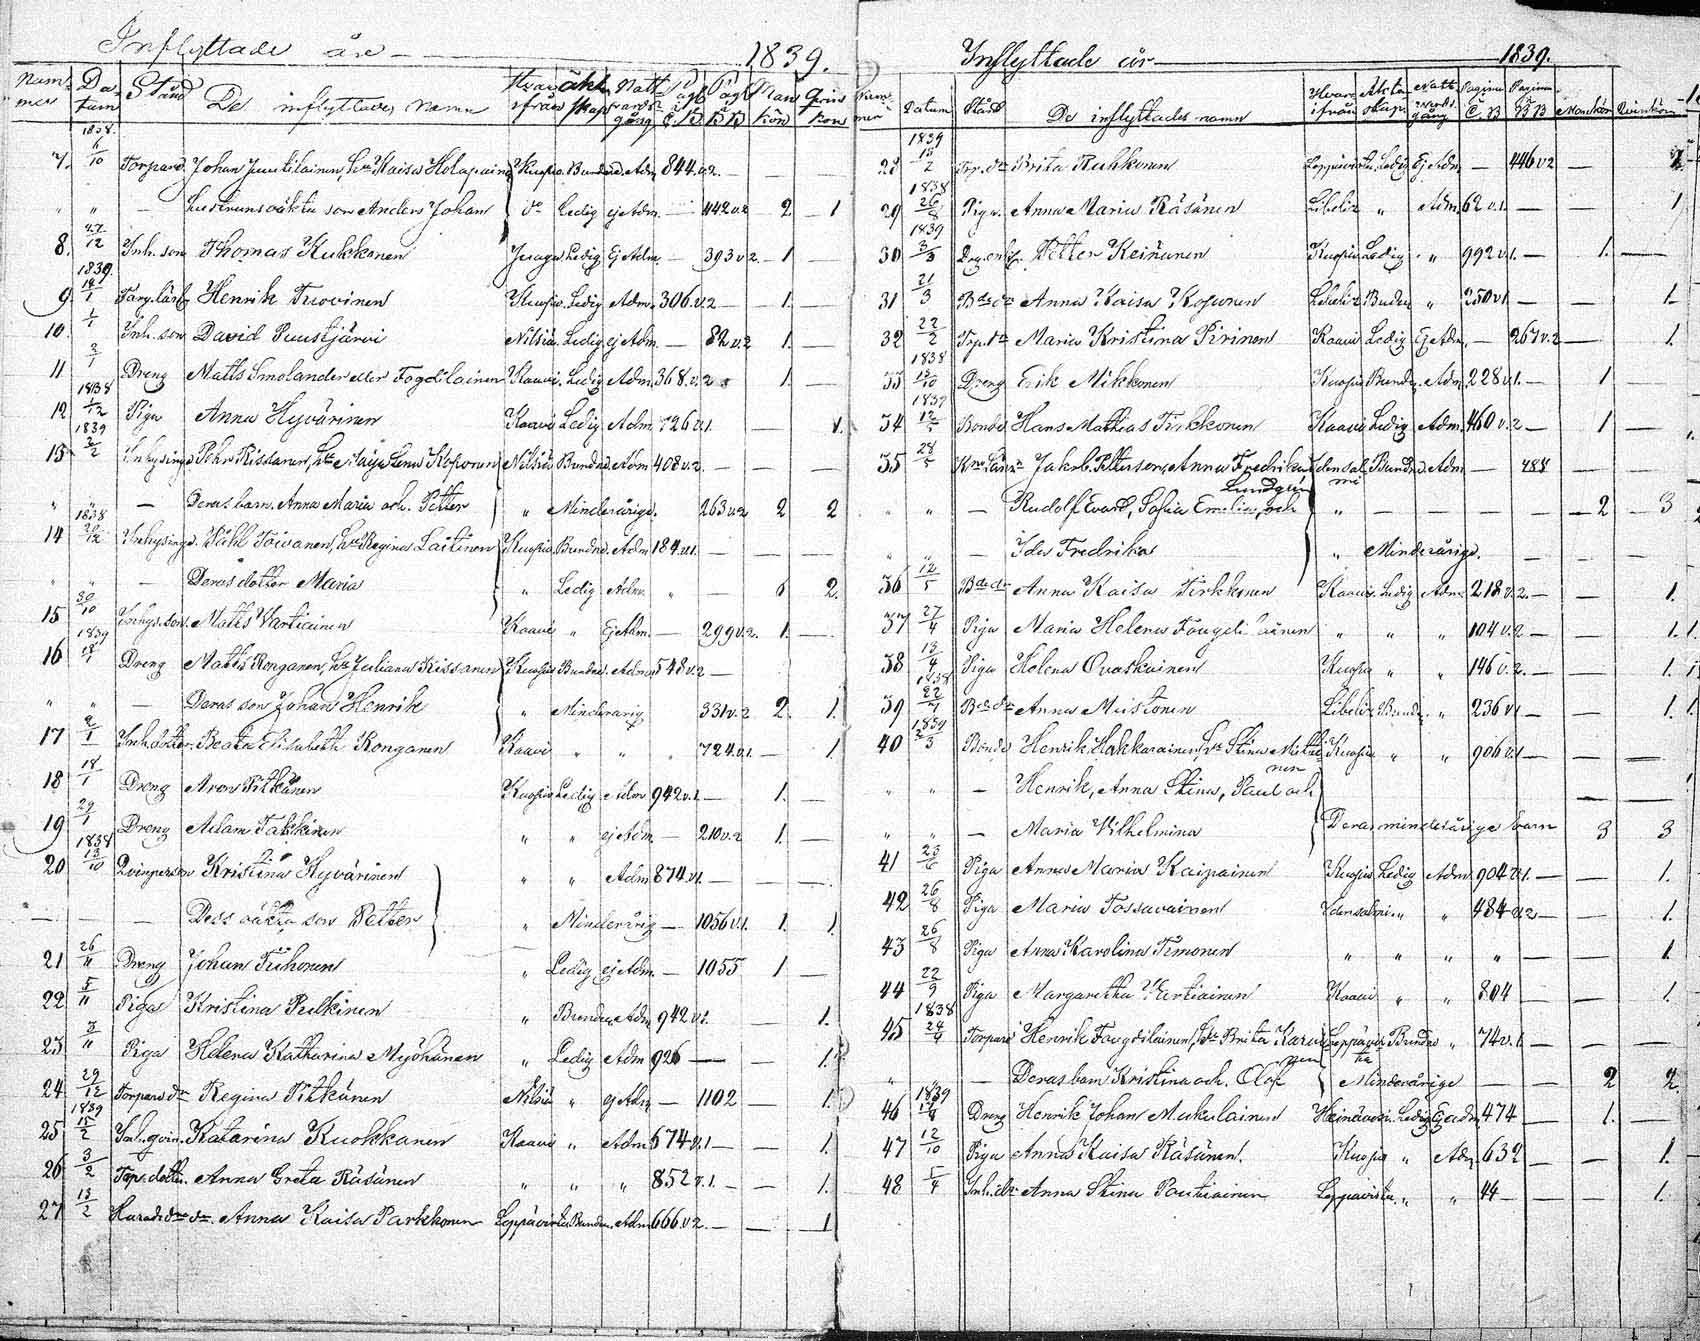 Inflyttade åre 1839.
Num- mer Da- tum Stånd De inflyttades namn Hvar ifrån äkt skap Natt vards gång Pag. å C.B. Pag. å B.B. Man kön Qvin kön
1838.
7. 6/10 Torpare Johan Juutilainen, Hu Kaisa Holapainen Kuopio. Bundne Adm. 844.v.2. —
" " — Hustruns oäkta son Anders Johan do Ledig ej Adm. — 442 v.2 — 2 — 1
8. 27/12 Inh. son Thomas Kukkonen Juuga. Ledig Ej Adm. — 393 v 2. — 1 —
1839.
9 18/1 Farg. lärl. Henrik Tuovinen Kuopio. Ledig Adm. 306. v.2 — 1. —
10. 1/1 Inh. son David Puustjärvi Nilsiä. Ledig ej Adm. — 82 v.2 — 1. —
11 2/1 Dreng Matts Smolander eller Fogdilainen Kaavi. Ledig Adm. 368.v.2 1. —
1838
12 1/12 Piga Anna Hyvärinen Kaavi Ledig Adm 726 v.1. — 1.
1839
13 2/2 Inhysing Pehr Rissanen, Hu Maija Lena Koponen Nilsiä Bundne Adm 408 v.2. —
" " — Deras barn. Anna Maria och. Petter " Minderårige. 263 v.2 2 2
1838
14 20/12 Inhysing. Påhl Toivanen, Hu Regina Laitinen Kuopio. Bundne. Adm 184 v.1. — — —
" " — Deras dotter Maria " Ledig Adm. " — 2.
15 30/10 Inhys. son. Matts Vartiainen Kaavi " Ej Adm. — 299 v.2. — 1. —
1839
16 18/1 Dreng Matts Ronganen, Hu Juliana Kissanen Kuopio Bundne Adm 548 v.2 —
" " — Deras son Johan Henrik " Minderårig. 331 v.2 2. 1.
17 2/1 Inh. dotter. Beata Elisabeth Ronganen Kaavi " " " 724 v.1. — 1
18 18/1 Dreng Aron Pitkänen Kuopio Ledig Adm 942 v.1. — 1. —
19 29/1 Dreng Adam Takkinen " " ej Adm. — 210 v.2 1. —
1838
20 13/10 Qvinperson Kristina Hyvärinen " " Adm 874 v.1. — — —
— — Dess oäkta son Petter " Minderårig — 1056 v.1. 1. 1.
21 26/11 Dreng Johan Tiihonen " Ledig ej Adm. — 1055 1 —
22 5/11 Piga Kristina Pulkinen " Bunden Adm 942 v.1. — 1.
23 3/11 Piga Helena Katharina Myöhänen " Ledig Adm 926 — — 1.
24 29/12 Torpare dr Regina Pitkänen Nilsiä " ej Adm — 1102 — 1.
1839
25 15/2 Inh. qvin. Katarina Kuokkanen Kaavi " Adm 674 v.1 — — 1.
26 3/2 Torp. dotter. Anna Greta Räsänen " " " 852 v.1. — — 1.
27 13/2 Anna Kaisa Parkkonen Leppävirta Bunden. Adm 666 v.2. — — 1
Inflyttade år 1839.
Num- mer Datum Stånd De inflyttades namn Hvar ifrån Äkta skap. Natt vards gång Pagina C.B Pagina B.B Mankön Qvinkön
1839
28 15/2 Torp. dr Brita Ruhkonen Leppävirta. Ledig Ej Adm — 446 v 2 1.
1838
29 26/8 Piga. Anna Maria Räsänen Libeliz " Adm 62 v.1. — — 1
1839
30 3/3 Petter Keinänen Kuopio Ledig " 992 v.1. — 1. —
31 21/3 Bde dr Anna Kaisa Koponen Libeliz Bunden " 250 v1 — — 1.
32 22/2 Torp. dr Maria Kristina Pirinen Kaavi Ledig Ej Adm. — 267 v.2 — 1.
1838
33 13/10 Dreng Erik Mikkonen Kuopio Bunden. Adm 228 v.1. — 1 —
1839
34 12/5 Bonde Hans Mathias Tirkkonen Kaavi Ledig Adm. 460 v.2 — 1 —
35 28/5 Jakob. Pettersen, Anna Fredrika Lundgrén Idensalmi Bundne. Adm — 488
" " — Rudolf Evard, Sofia Emelia, och " — — — — 2 — 3
" " — Ida Fredrika " Minderårige. — — —
36 12/5 Bde dr Anna Kaisa Tirkkonen Kaavi. Ledig Adm 218 v.2. — — 1.
37 27/4 Piga Maria Helena Fougdilainen " " " 104 v.2 — — 1.
38 13/4 Piga Helena Ovaskainen Kuopio " " 146 v.2. — — 1.
1838
39 22/7 Bde dr Anna Mustonen Libeliz Bunden " 236 v1 — — 1.
1839
40 2/3 Bonde Henrik Hakkarainen, Hu Stina Miettinen Kuopio " " 906 v.1 — — —
" " — Henrik, Anna Stina, Paul och — —
" " — Maria Vilhelmina Deras minderårige barn 3 3
41 23/6 Piga Anna Maria Kaipainen Kuopio Ledig Adm. 904 v.1. — — 1.
42 26/8 Piga Maria Tossavainen Idensalmi. " " 484 v.2 — — 1.
43 26/8 Piga Anna Karolina Timonen " " " " — — 1
44 22/9 Piga Margaretha Vartiainen Kaavi " " 804 — — 1.
1838
45 24/4 Torpare Henrik Fougdilainen, Hu Brita Karvinen Leppävirta Bundne " 74 v.1 — —
" " — Deras barn Kristina och. Olof Minderårige — — 2 2.
1839
46 14/8 Dreng Henrik Johan Mukulainen Heinävesi. Ledig Ej adm 474 — 1. —
47 12/10 Piga Anna Kaisa Räsänen. Kuopio " Adm. 632 — — 1.
48 5/4 Inh. dr Anna Stina Poutiainen Leppävirta. " " 44 — — 1.